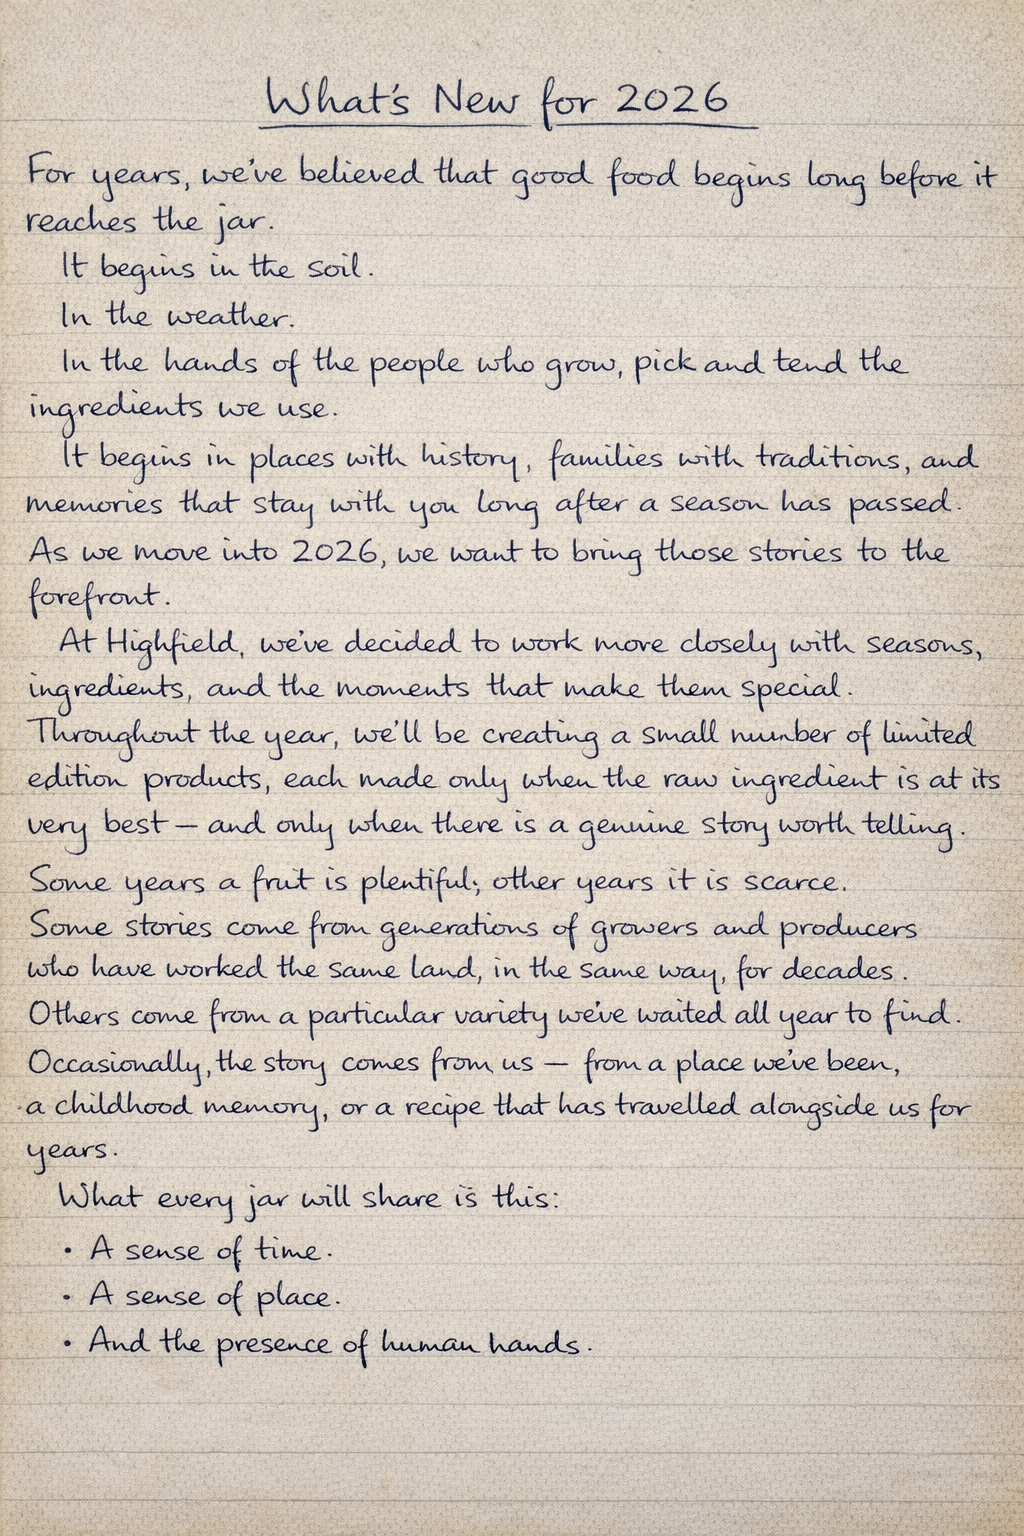 What's New for 2026
For years, we've believed that good food begins long before it
reaches the jar.
It begins in the soil.
In the weather.
In the hands of the people who grow, pick and tend the
ingredients we use.
It begins in places with history, families with traditions, and
memories that stay with you long after a season has passed.
As we move into 2026, we want to bring those stories to the
forefront.
At Highfield, we've decided to work more closely with seasons,
ingredients, and the moments that make them special.
Throughout the year, we'll be creating a small number of limited
edition products, each made only when the raw ingredient is at its
very best — and only when there is a genuine story worth telling.
Some years a fruit is plentiful; other years it is scarce.
Some stories come from generations of growers and producers
who have worked the same land, in the same way, for decades.
Others come from a particular variety we've waited all year to find.
Occasionally, the story comes from us — from a place we've been,
a childhood memory, or a recipe that has travelled alongside us for
years.
What every jar will share is this:
• A sense of time.
• A sense of place.
• And the presence of human hands.